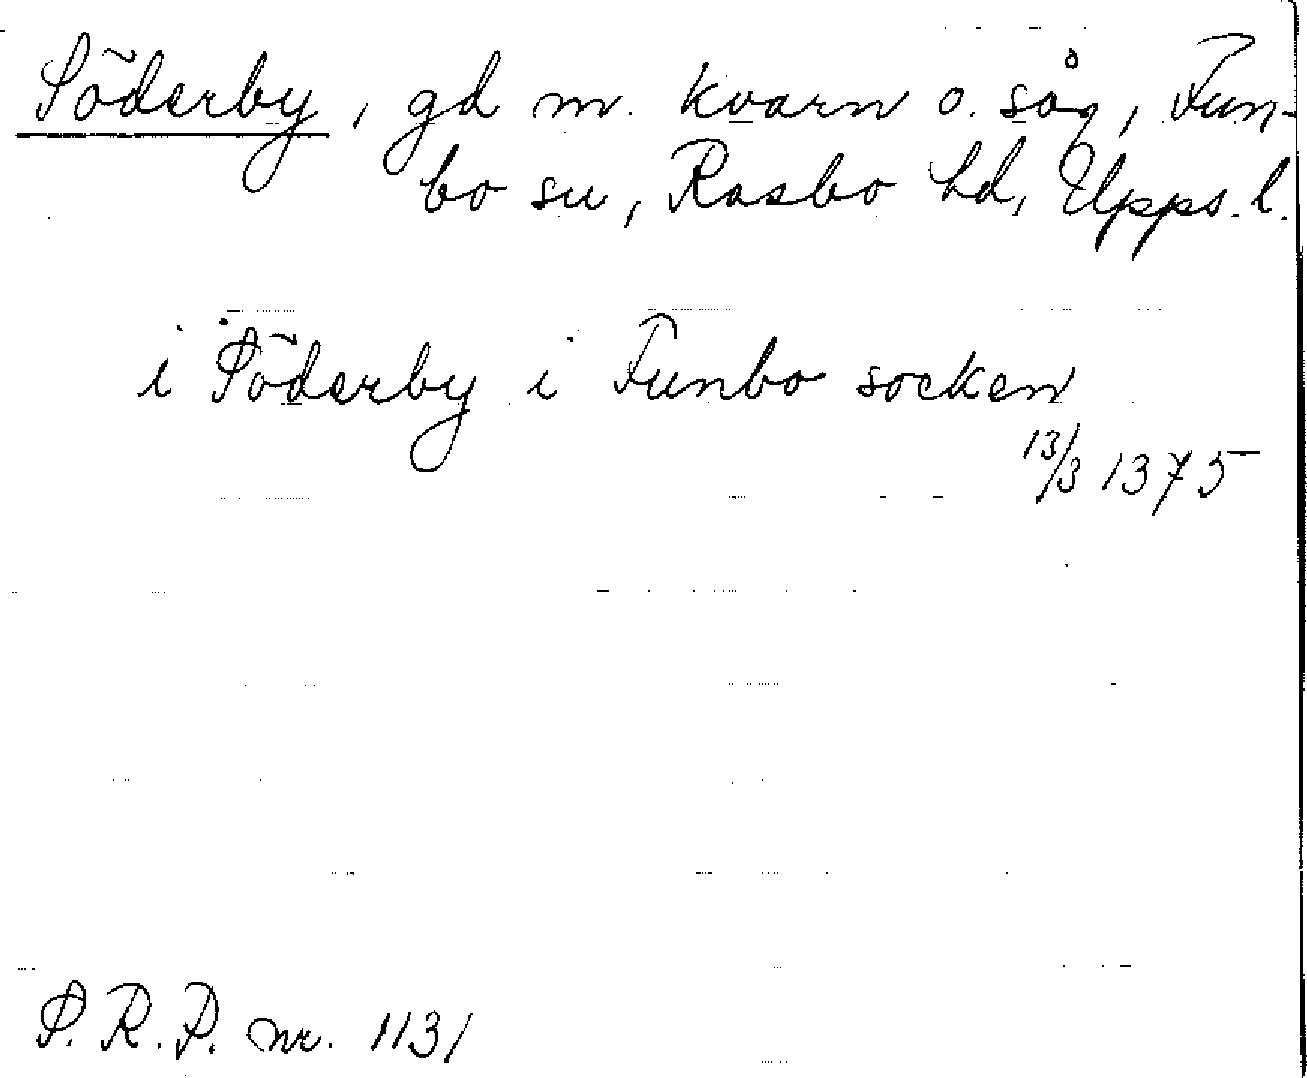 Söderby, gd m. kvarn o. såg, Fun-
bo sn, Rasbo hd, Upps. l.
i Söderby i Funbo socken
13/3 1375
S.R.P. nr. 1131